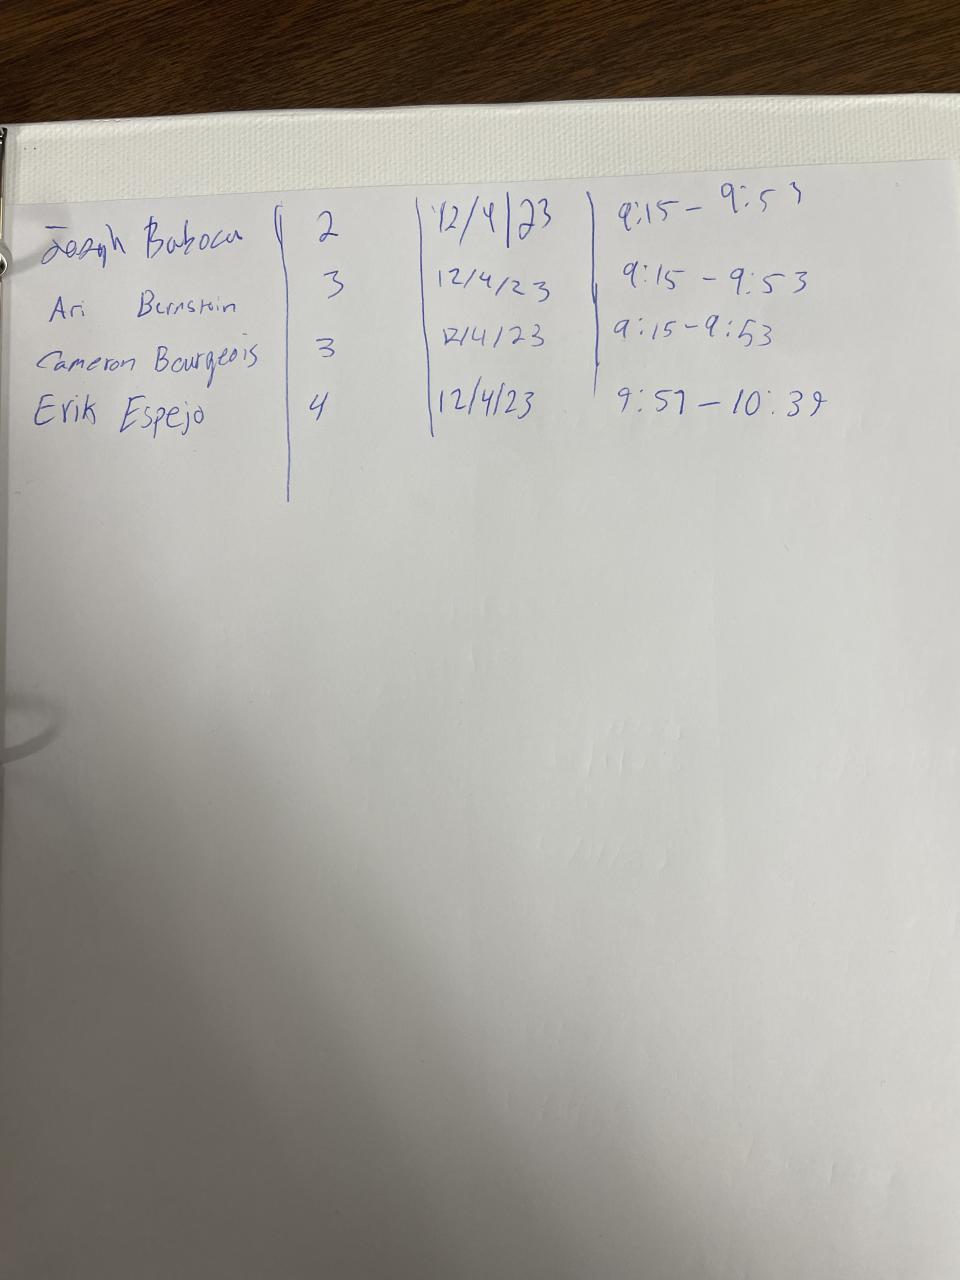 Joseph Baboca 2 12/4/23 9:15 - 9:53
Ari Bernstein 3 12/4/23 9:15 - 9:53
Cameron Bourgeois 3 12/4/23 9:15-9:53
Erik Espejo 4 12/4/23 9:57 - 10:39